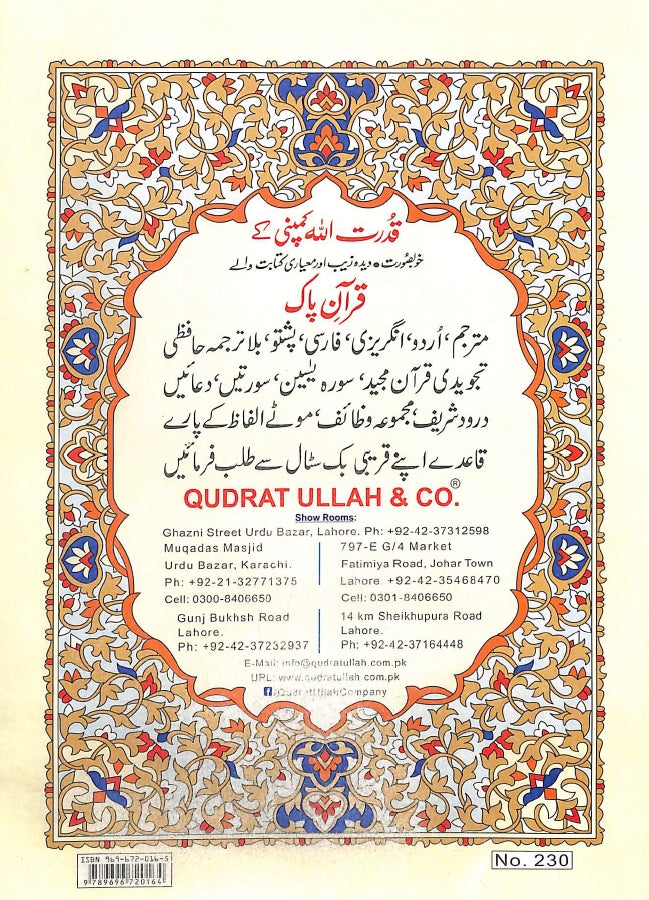 قدرت اللہ کمپنی کے
خوبصورت • دیدہ زیب اور معیاری کتابت والے
قرآنِ پاک
مترجم، اُردو، انگریزی، فارسی، پشتو، بلا ترجمہ حافظی
تجویدی قرآن مجید، سورہ یٰسین، سورتیں، دعائیں
درود شریف، مجموعہ وظائف، موٹے الفاظ کے پارے
قاعدے اپنے قریبی بک سٹال سے طلب فرمائیں
QUDRAT ULLAH & CO.®
Show Rooms:
Ghazni Street Urdu Bazar, Lahore. Ph: +92-42-37312598
Muqadas Masjid
Urdu Bazar, Karachi.
Ph: +92-21-32771375
Cell: 0300-8406650
797-E G/4 Market
Fatimiya Road, Johar Town
Lahore. +92-42-35468470
Cell: 0301-8406650
Gunj Bukhsh Road
Lahore.
Ph: +92-42-37232937
14 km Sheikhupura Road
Lahore.
Ph: +92-42-37164448
E-Mail: info@qudratullah.com.pk
UPL: www.qudratullah.com.pk
QudratUllahCompany
ISBN 969-672-016-5
9 789696 720164
No. 230